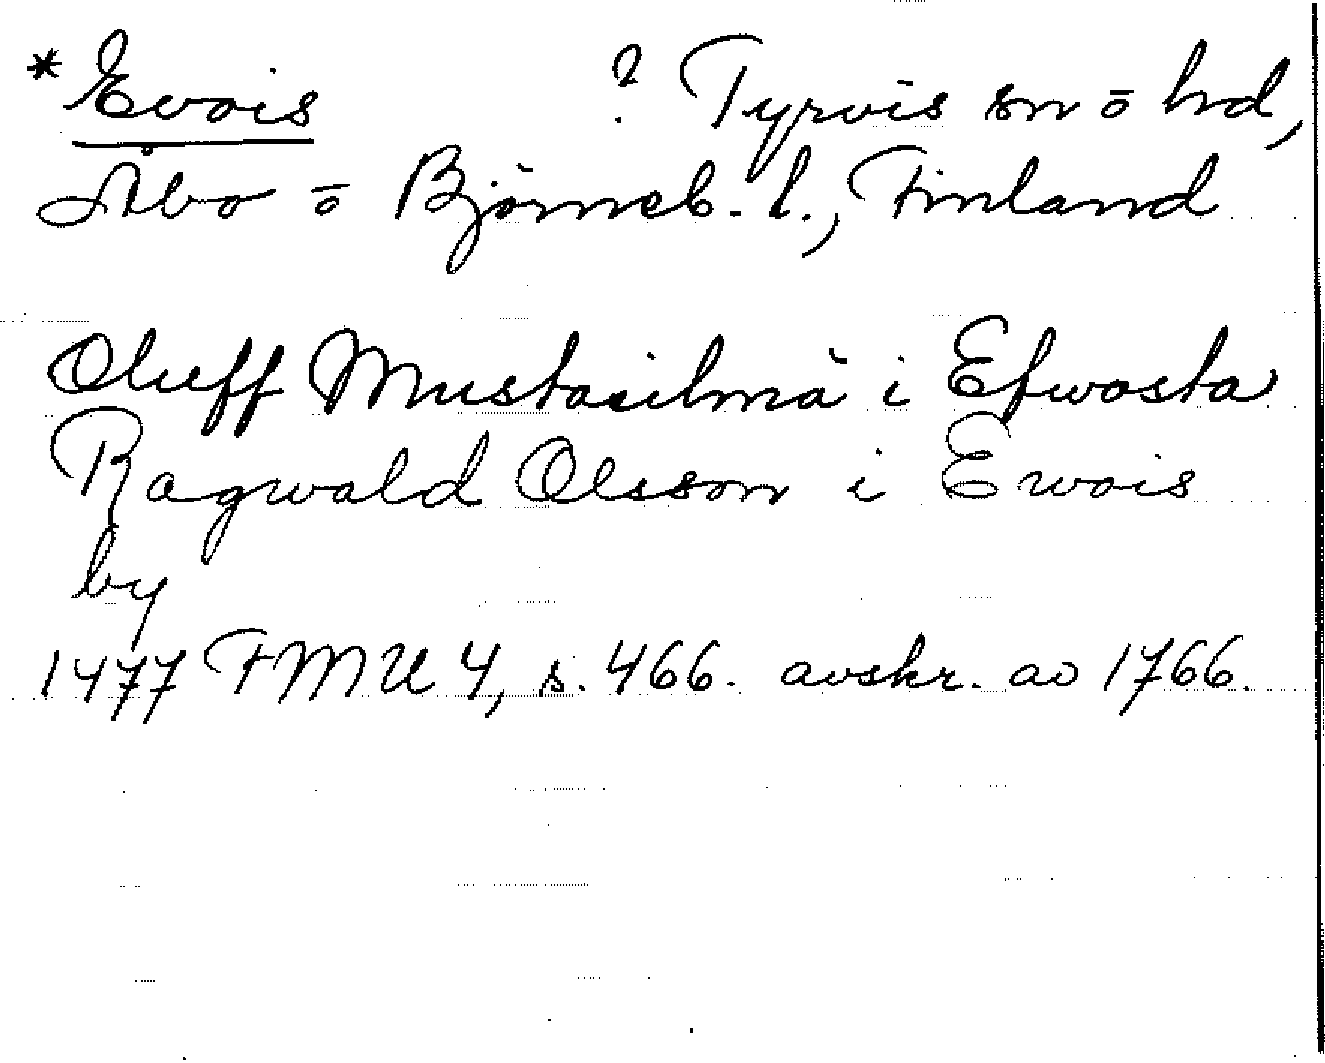 *Evois ? Tyrvis sn ō hd,
Åbo ō Björneb. l., Finland
Oluff Mustasilmä i Efwosta
Ragwald Olsson i Ewois
by
1477 FMU 4, s. 466. avskr. av 1766.